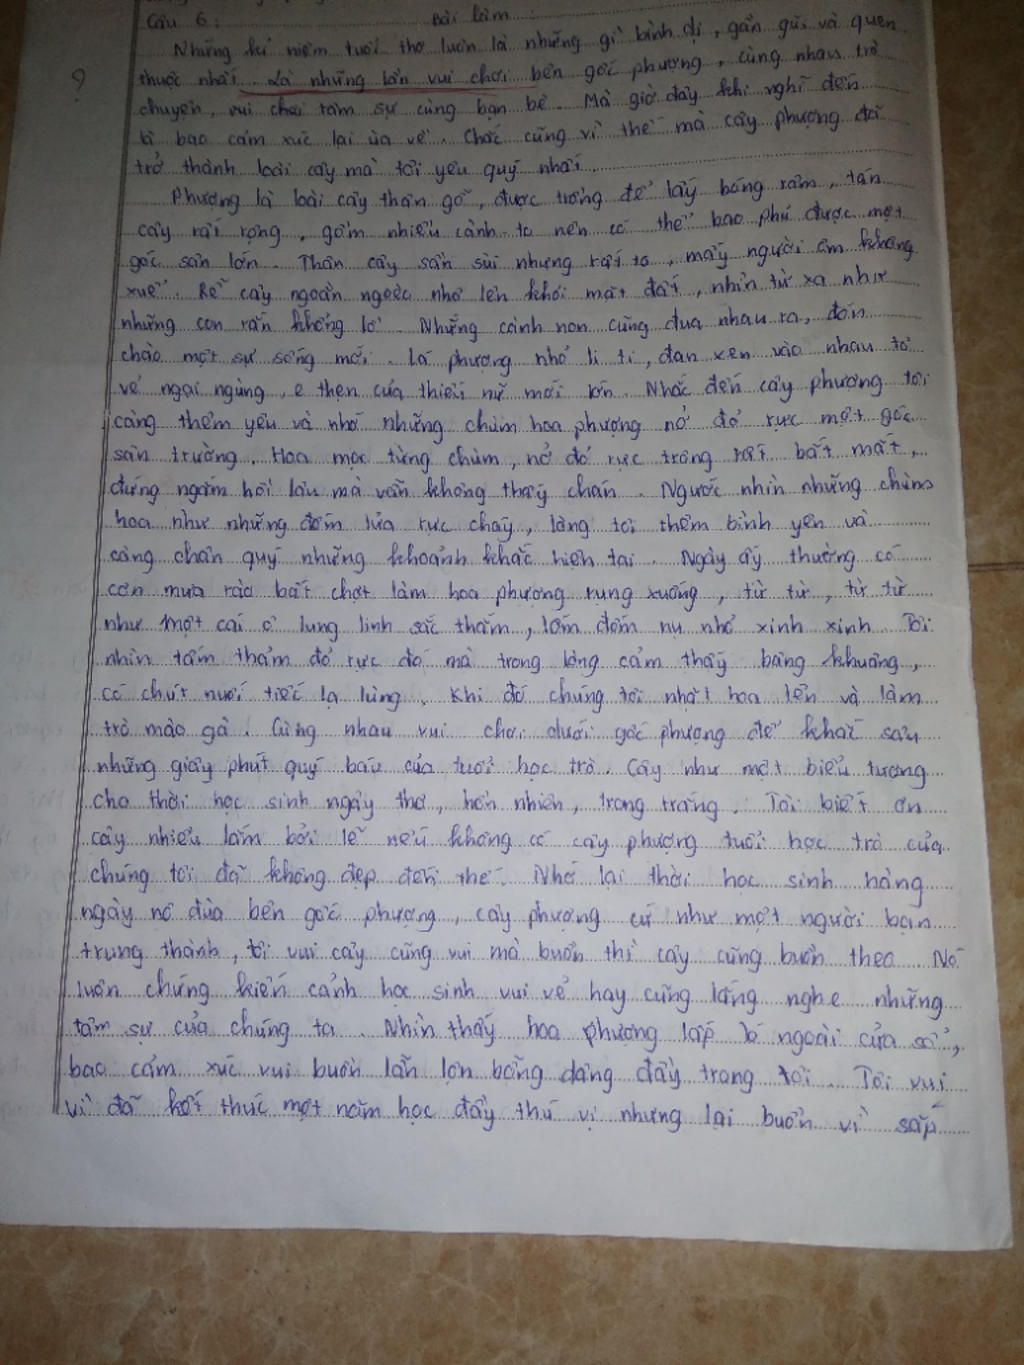 Câu 6: Bài làm
Những kỉ niệm tuổi thơ luôn là những gì bình dị, gần gũi và quen
? thuộc nhất. Là những lần vui chơi bên gốc phượng, cùng nhau trò
chuyện, vui chơi tâm sự cùng bạn bè. Mà giờ đây khi nghĩ đến
bao cảm xúc lại ùa về. Chắc cũng vì thế mà cây phượng đã
trở thành loài cây mà tôi yêu quý nhất.
Phượng là loài cây thân gỗ, được trồng để lấy bóng râm, tán
cây rất rộng, gồm nhiều cành to nên có thể bao phủ được một
góc sân lớn. Thân cây sần sùi nhưng rất to, mấy người ôm không
xuể. Rễ cây ngoằn ngoèo nhô lên khỏi mặt đất, nhìn từ xa như
những con rắn khổng lồ. Những cành non cũng đua nhau ra, đón
chào một sự sống mới. Lá phượng nhỏ li ti, đan xen vào nhau tỏ
vẻ ngại ngùng, e thẹn của thiếu nữ mới lớn. Nhắc đến cây phượng tôi
càng thêm yêu và nhớ những chùm hoa phượng nở đỏ rực một góc
sân trường. Hoa mọc từng chùm, nở đỏ rực trông rất bắt mắt,
đứng ngắm hồi lâu mà vẫn không thấy chán. Ngước nhìn những chùm
hoa như những đốm lửa rực cháy, lòng tôi thêm bình yên và
càng chân quý những khoảnh khắc hiện tại. Ngày ấy thường có
cơn mưa rào bất chợt làm hoa phượng rụng xuống, từ từ, từ từ
như một cái ô lung linh sắc thắm, lốm đốm nụ nhỏ xinh xinh. Tôi
nhìn tấm thảm đỏ rực đó mà trong lòng cảm thấy bâng khuâng,
có chút nuối tiếc lạ lùng. Khi đó chúng tôi nhặt hoa lên và làm
trò mào gà. Cùng nhau vui chơi dưới gốc phượng để khắc sâu
những giây phút quý báu của tuổi học trò. Cây như một biểu tượng
cho thời học sinh ngây thơ, hồn nhiên, trong trắng. Tôi biết ơn
cây nhiều lắm bởi lẽ nếu không có cây phượng tuổi học trò của
chúng tôi đã không đẹp đến thế. Nhớ lại thời học sinh hàng
ngày nô đùa bên gốc phượng, cây phượng cứ như một người bạn
trung thành, tôi vui cây cũng vui mà buồn thì cây cũng buồn theo. Nó
luôn chứng kiến cảnh học sinh vui vẻ hay cũng lắng nghe những
tâm sự của chúng ta. Nhìn thấy hoa phượng lấp ló ngoài cửa sổ,
bao cảm xúc vui buồn lẫn lộn bỗng dâng đầy trong tôi. Tôi vui
vì đã kết thúc một năm học đầy thú vị nhưng lại buồn vì sắp